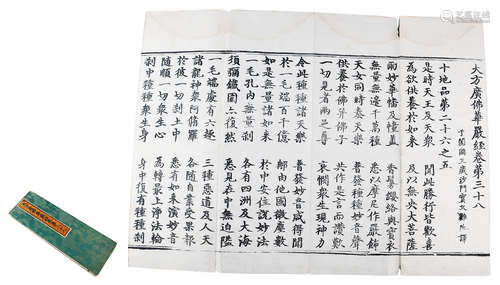 大方廣佛華嚴經卷第三十八
于闐國三藏沙門實叉難陀譯
十地品第二十六之五
是時天王及天衆 聞此勝行皆歡喜
為欲供養於如來 及以無央大菩薩
雨妙華幡及幢蓋 香鬘瓔珞與寶衣
無量無邊千萬種 悉以摩尼作嚴飾
天女同時奏天樂 普發種種妙音聲
供養於佛并佛子 共作是言而讚歎
一切見者兩足尊 哀愍衆生現神力
令此種種諸天樂 普發妙音咸得聞
於一毛端百千億 那由他國微塵數
如是無量諸如來 於中安住說妙法
一毛孔内無量剎 各有四洲及大海
須彌鐵圍亦復然 悉見在中無迫隘
一毛端處有六趣 三種惡道及人天
諸龍神衆阿脩羅 各隨自業受果報
於彼一切剎土中 悉有如來演妙音
隨順一切衆生心 為轉最上淨法輪
剎中種種衆生身 身中復有種種剎